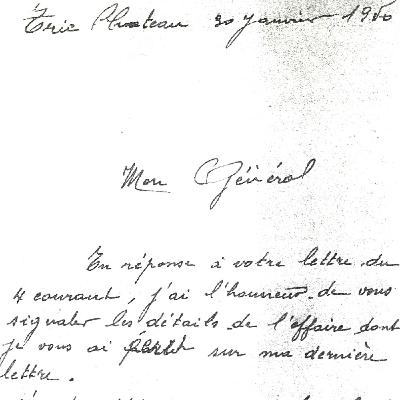 Eric Plateau 20 Janvier 1950
Mon Général
En réponse à votre lettre du
4 courant, j'ai l'honneur de vous
signaler les détails de l'affaire dont
je vous ai sur ma dernière
lettre.